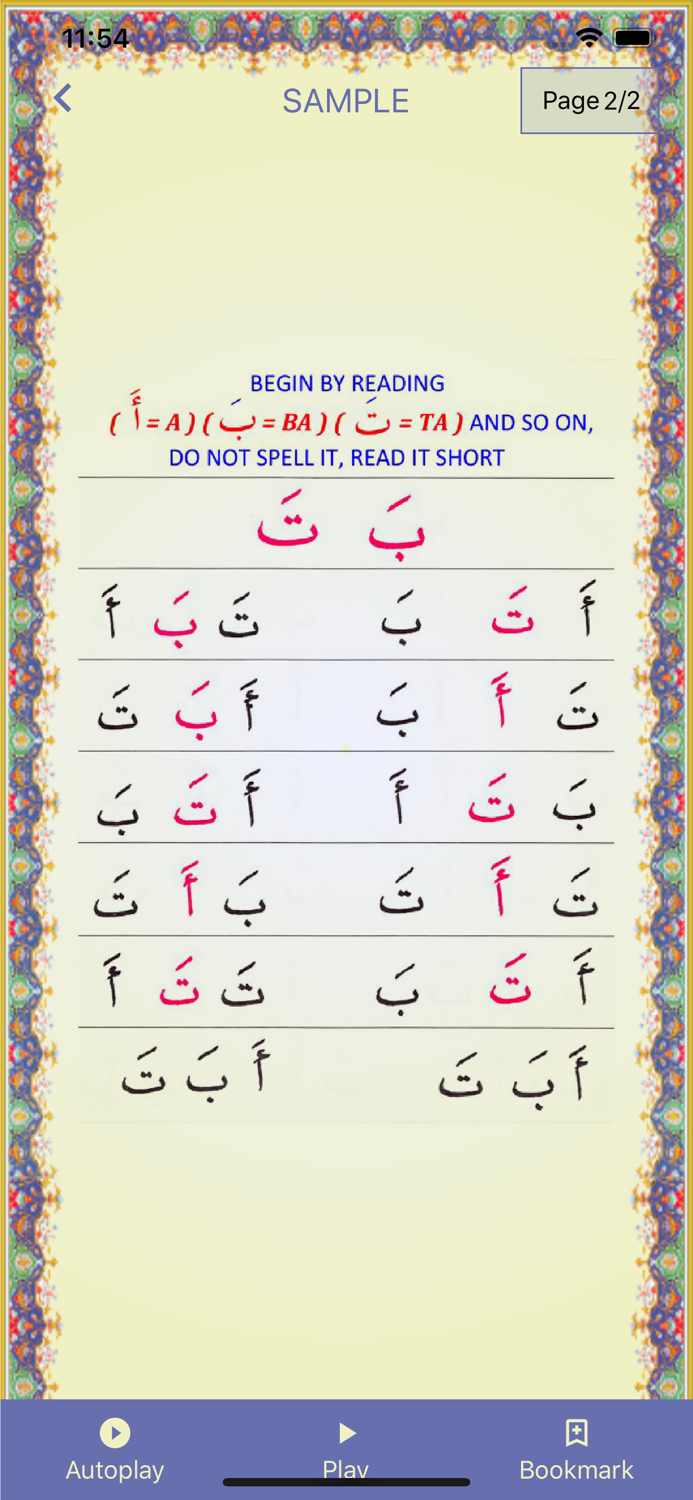 11:54
SAMPLE
Page 2/2
BEGIN BY READING
( أَ = A ) ( بَ = BA ) ( تَ = TA ) AND SO ON,
DO NOT SPELL IT, READ IT SHORT
بَ تَ
أَ تَ بَ تَ بَ أَ
تَ أَ بَ أَ بَ تَ
بَ تَ أَ أَ تَ بَ
تَ أَ تَ بَ أَ تَ
أَ تَ بَ تَ تَ أَ
أَ بَ تَ أَ بَ تَ
Autoplay Play Bookmark